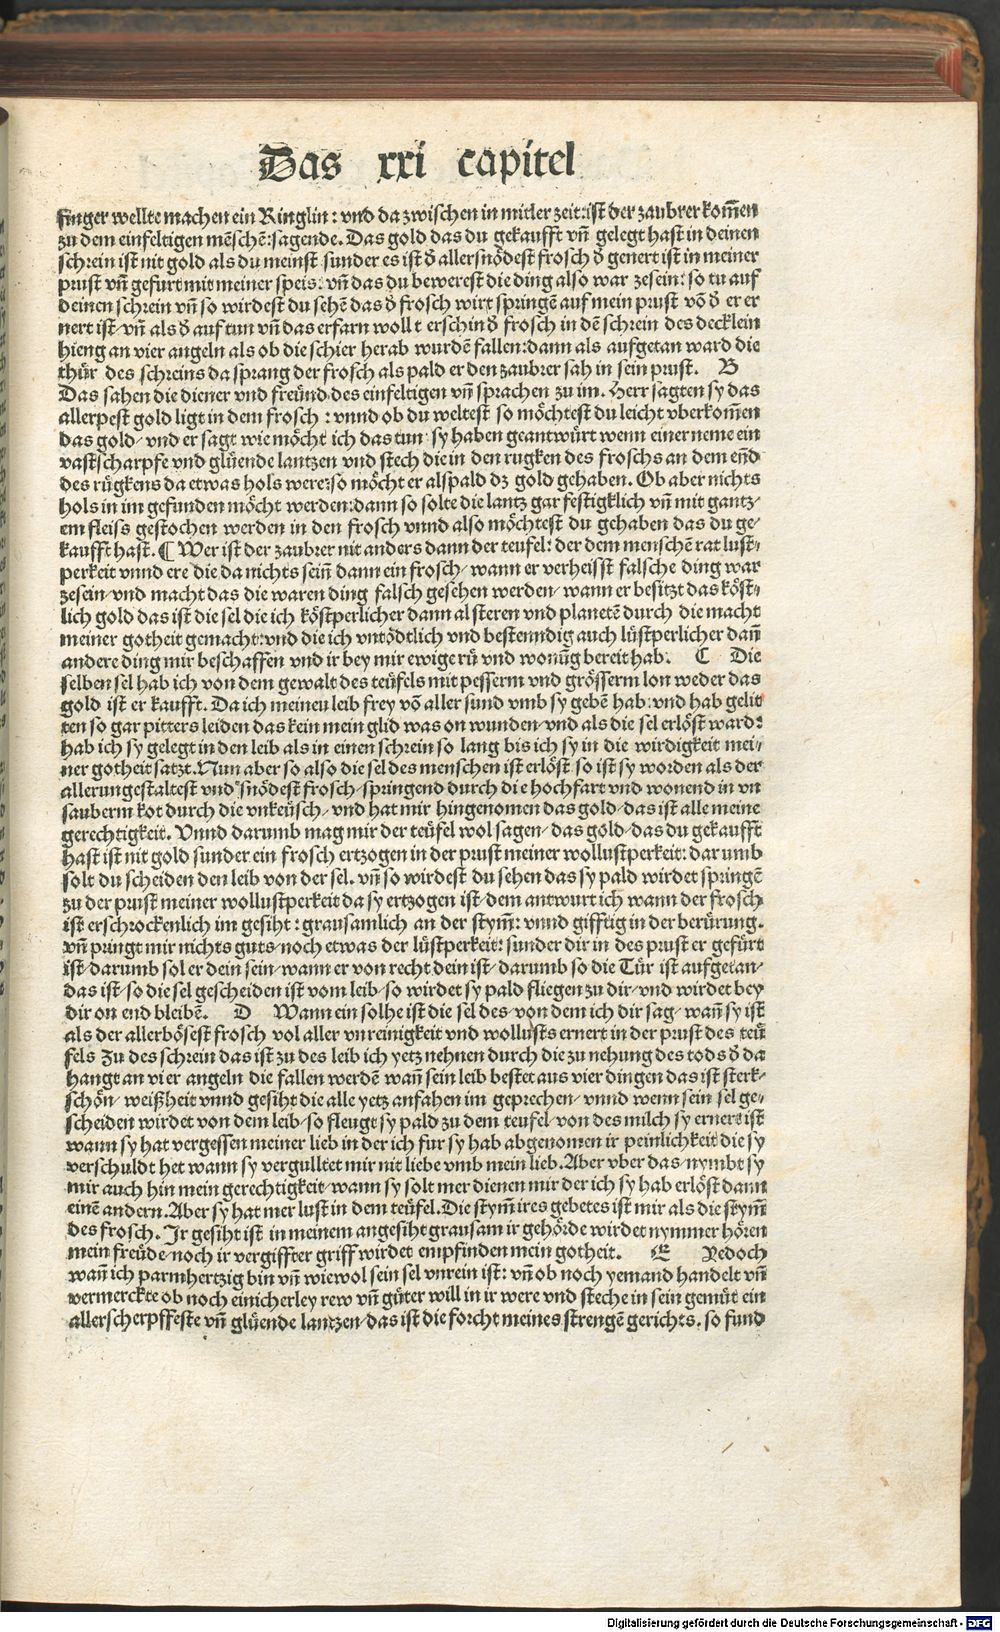 Das xxi capitel
finger wellte machen ein Ringlin: vnd da zwischen in mitler zeit: ist der zaubrer kom̄en
zu dem einfeltigen mēschē: sagende. Das gold das du gekaufft vn̄ gelegt hast in deinen
schrein ist nit gold als du meinst sunder es ist ð allersnödest frosch ð genert ist in meiner
prust vn̄ gefurt mit meiner speis: vn̄ das du bewerest die ding also war zesein: so tu auf
deinen schrein vn̄ so wirdest du sehē das ð frosch wirt springē auf mein prust vō ð er er
nert ist/ vn̄ als ð auf tun vn̄ das erfarn wollt erschin ð frosch in dē schrein des decklein
hieng an vier angeln als ob die schier herab wurdē fallen: dann als aufgetan ward die
thür des schreins da sprang der frosch als pald er den zaubrer sah in sein prust. B
Das sahen die diener vnd freünd des einfeltigen vn̄ sprachen zu im. Herr sagten sy das
allerpest gold ligt in dem frosch: vnnd ob du weltest so möchtest du leicht vberkom̄en
das gold/ vnd er sagt wie möcht ich das tun sy haben geantwürt wenn einer neme ein
vast scharpfe vnd glüende lantzen vnd stech die in den rugken des froschs an dem en̄d
des rügkens da etwas hols were: so möcht er alspald dz gold gehaben. Ob aber nichts
hols in im gefunden möcht werden: dann so solte die lantz gar festigklich vn̄ mit gantz⸗
em fleiss gestochen werden in den frosch vnnd also möchtest du gehaben das du ge⸗
kaufft hast. ¶ Wer ist der zaubrer nit anders dann der teufel: der dem menschē rat lust⸗
perkeit vnnd ere die da nichts sein̄ dann ein frosch/ wann er verheisst falsche ding war
zesein/ vnd macht das die waren ding falsch gesehen werden/ wann er besitzt das köst⸗
lich gold das ist die sel die ich köstperlicher dann al steren vnd planetē durch die macht
meiner gotheit gemacht: vnd die ich vntödtlich vnd bestenndig auch lüstperlicher dan̄
andere ding mir beschaffen vnd ir bey mir ewige rü vnd wonūg bereit hab. C Die
selben sel hab ich von dem gewalt des teüfels mit pesserm vnd grösserm lon weder das
gold ist er kaufft. Da ich meinen leib frey vō aller sund vmb sy gebē hab: vnd hab gelit
ten so gar pitters leiden das kein mein glid was on wunden/ vnd als die sel erlöst ward:
hab ich sy gelegt in den leib als in einen schrein so lang bis ich sy in die wirdigkeit mei⸗
ner gotheit satzt. Nun aber so also die sel des menschen ist erlöst so ist sy worden als der
allerungestaltest vnd snödest frosch/ springend durch die hochfart vnd wonend in vn
sauberm kot durch die vnkeüsch/ vnd hat mir hingenomen das gold/ das ist alle meine
gerechtigkeit. Vnnd darumb mag mir der teüfel wol sagen/ das gold/ das du gekaufft
hast ist nit gold sunder ein frosch ertzogen in der prust meiner wollustperkeit: darumb
solt du scheiden den leib von der sel. vn̄ so wirdest du sehen das sy pald wirdet springē
zu der prust meiner wollustperkeit da sy ertzogen ist/ dem antwurt ich wann der frosch
ist erschrockenlich im gesiht: grausamlich an der stym̄: vnnd gifftig in der berürung.
vn̄ pringt mir nichts guts/ noch etwas der lüstperkeit: sunder dir in des prust er gefürt
ist/ darumb sol er dein sein/ wann er von recht dein ist/ darumb so die Tür ist aufgetan/
das ist/ so die sel gescheiden ist vom leib/ so wirdet sy pald fliegen zu dir/ vnd wirdet bey
dir on end bleibē. D Wann ein solhe ist die sel des/ von dem ich dir sag/ wan̄ sy ist
als der allerbösest frosch vol aller vnreinigkeit vnd wollusts ernert in der prust des teü
fels Zu des schrein das ist zu des leib ich yetz nehnen durch die zu nehung des tods ð da
hangt an vier angeln die fallen werdē wan̄ sein leib bestet aus vier dingen das ist sterk⸗
schön/ weißheit vnnd gesiht die alle yetz anfahen im geprechen/ vnnd wenn sein sel ge⸗
scheiden wirdet von dem leib/ so fleugt sy pald zu dem teufel/ von des milch sy ernert ist
wann sy hat vergessen meiner lieb in der ich fur sy hab abgenomen ir peinlichkeit die sy
verschuldt het wann sy vergulltet mir nit liebe vmb mein lieb. Aber vber das/ nymbt sy
mir auch hin mein gerechtigkeit/ wann sy solt mer dienen mir der ich sy hab erlöst dann
einē andern. Aber sy hat mer lust in dem teüfel. Die stym̄ ires gebetes ist mir als die stym̄
des frosch. Ir gesiht ist in meinem angesiht grausam ir gehörde wirdet nymmer hören
mein freüde/ noch ir vergiffter griff wirdet empfinden mein gotheit. E Yedoch
wan̄ ich parmhertzig bin vn̄ wiewol sein sel vnrein ist: vn̄ ob noch yemand handelt vn̄
vermerckte ob noch einicherley rew vn̄ güter will in ir were vnd steche in sein gemüt ein
allerscherpffeste vn̄ glüende lantzen/ das ist die forcht meines strengē gerichts. so fund
Digitalisierung gefördert durch die Deutsche Forschungsgemeinschaft - DFG